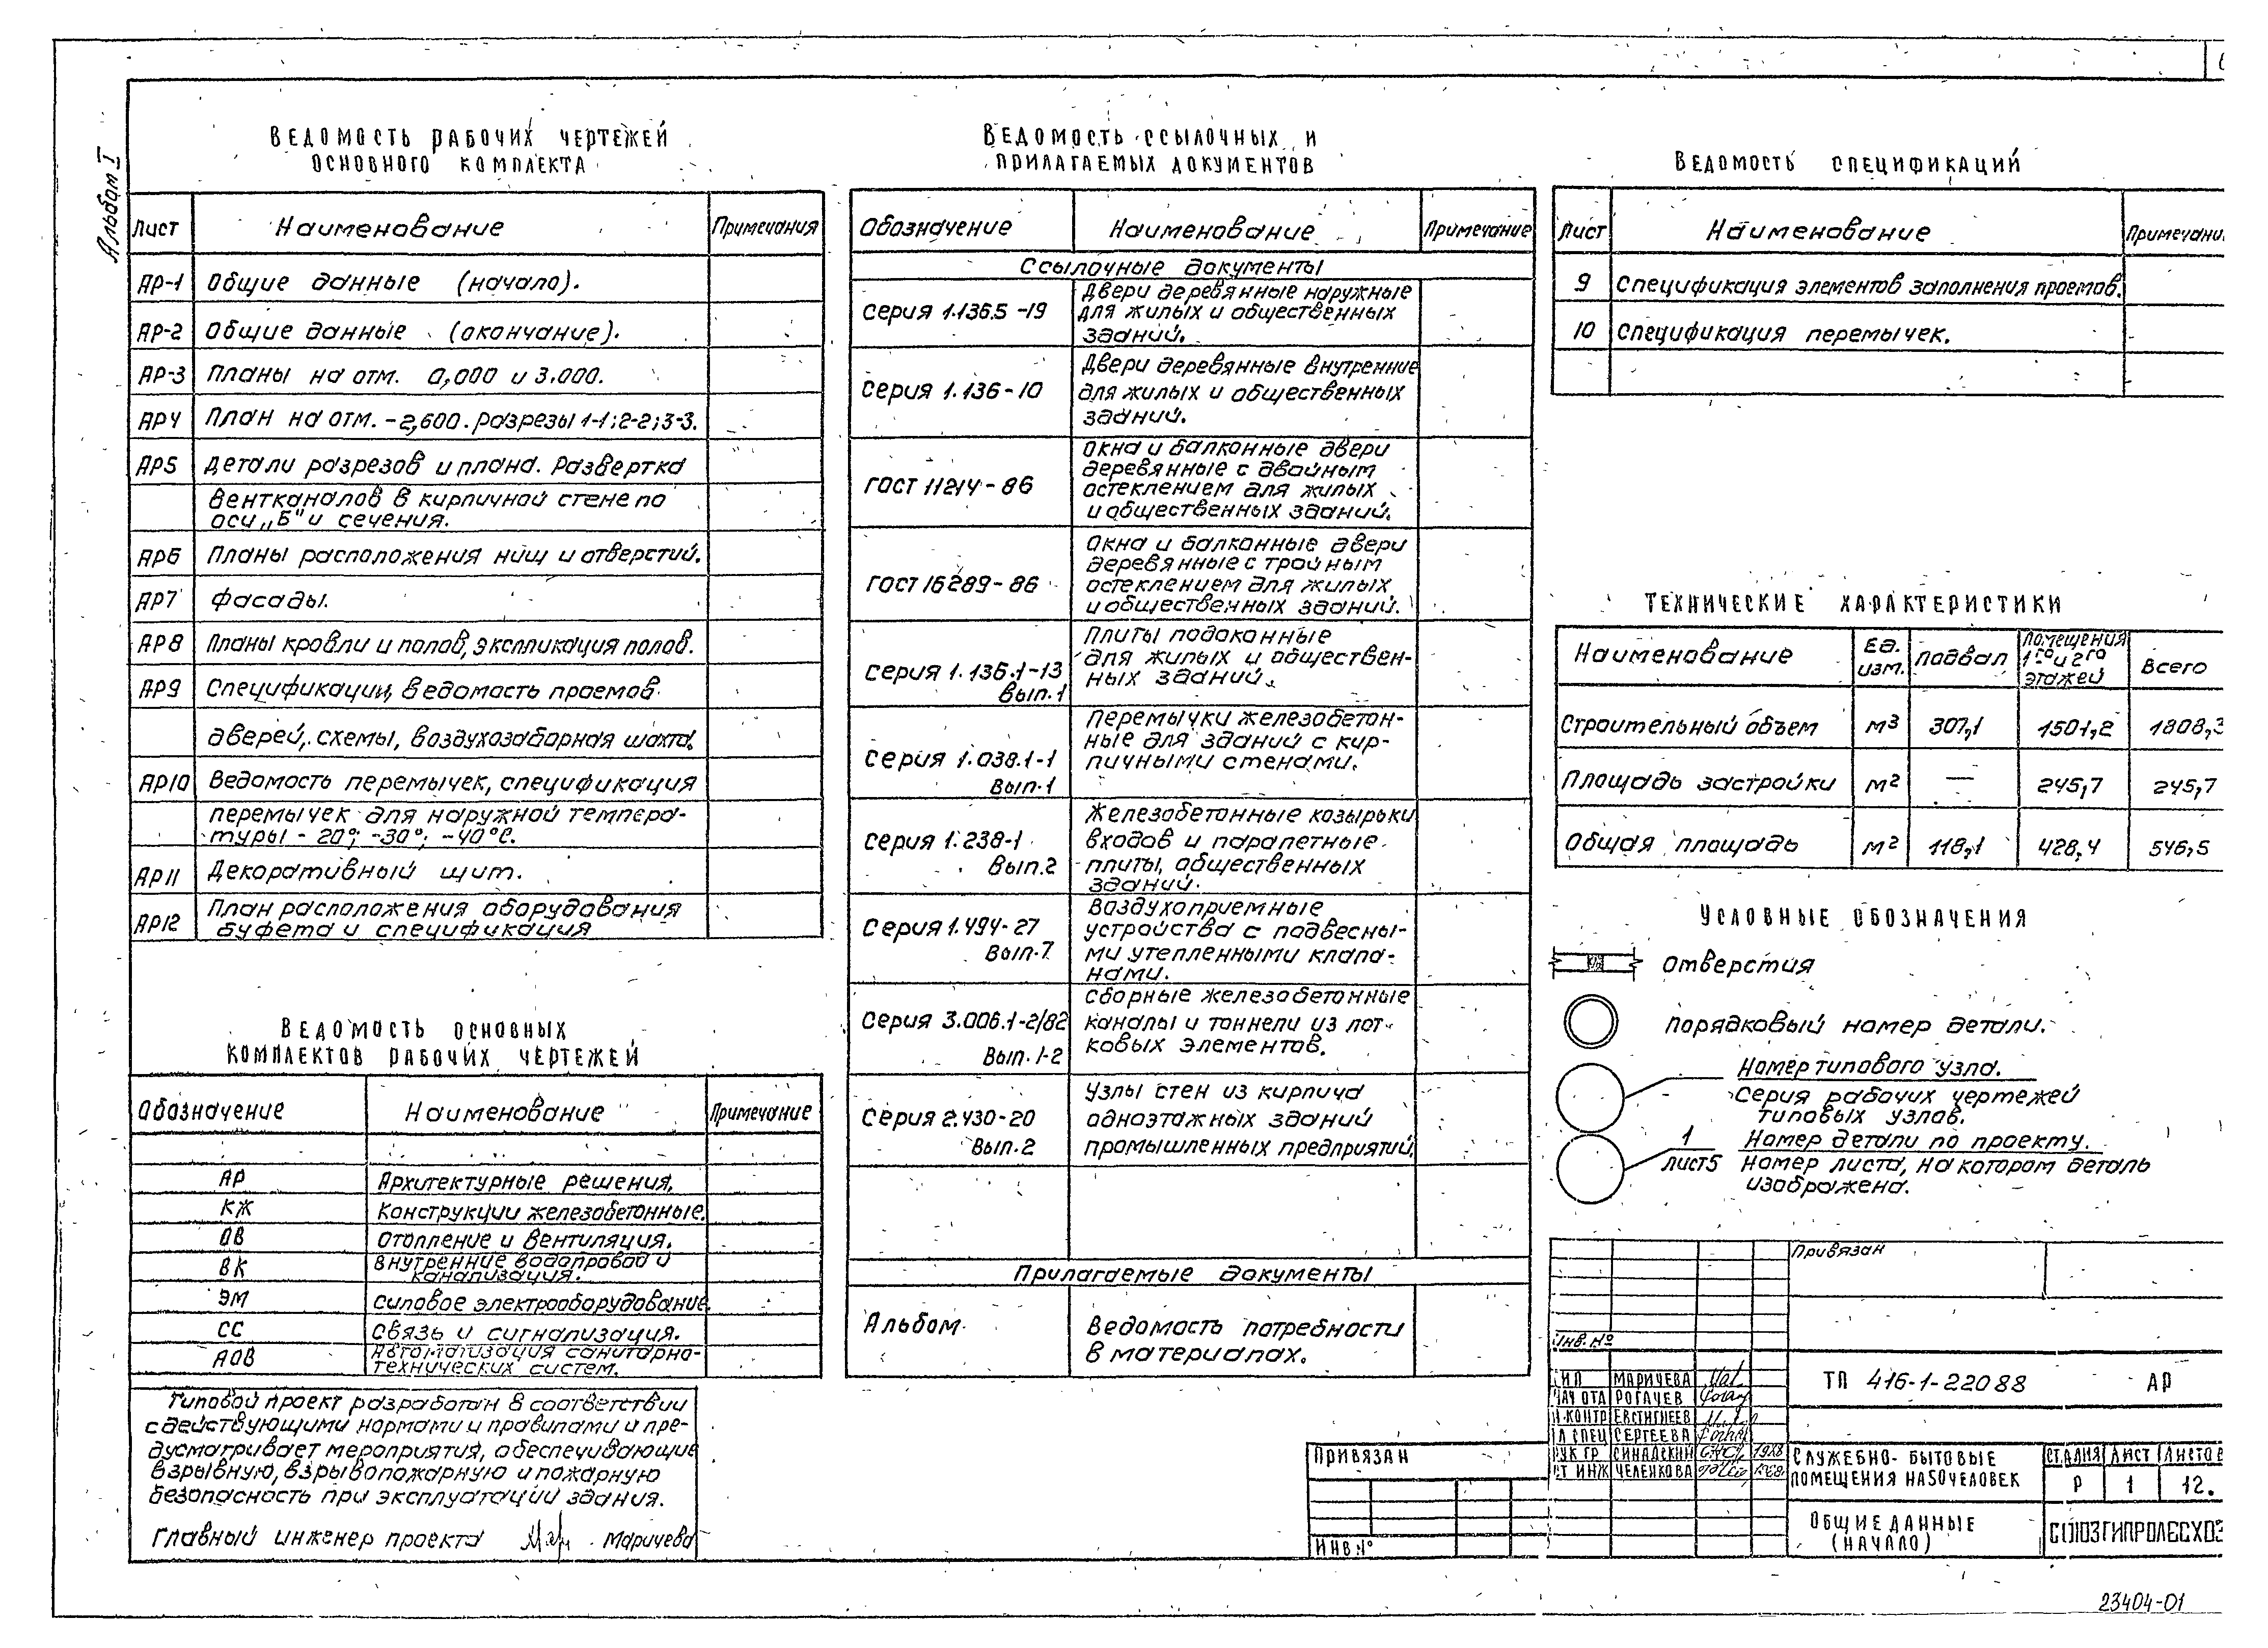 Альбом I
ВЕДОМОСТЬ РАБОЧИХ ЧЕРТЕЖЕЙ
ОСНОВНОГО КОМПЛЕКТА
Лист Наименование Примечания
АР-1 Общие данные (начало).
АР-2 Общие данные (окончание).
АР-3 Планы на отм. 0,000 и 3.000.
АР4 План на отм. -2,600. Разрезы 1-1; 2-2; 3-3.
АР5 Детали разрезов и плана. Развертка
вентканалов в кирпичной стене по
оси „Б" и сечения.
АР6 Планы расположения ниш и отверстий.
АР7 Фасады.
АР8 Планы кровли и полов, экспликация полов.
АР9 Спецификации, ведомость проемов
дверей, схемы, воздухозаборная шахта.
АР10 Ведомость перемычек, спецификация
перемычек для наружной темпера-
туры - 20°; -30°; -40°С.
АР11 Декоративный щит.
АР12 План расположения оборудования
буфета и спецификация
ВЕДОМОСТЬ ОСНОВНЫХ
КОМПЛЕКТОВ РАБОЧИХ ЧЕРТЕЖЕЙ
Обозначение Наименование Примечание
АР Архитектурные решения.
КЖ Конструкции железобетонные.
ОВ Отопление и вентиляция.
ВК Внутренние водопровод и
канализация.
ЭМ Силовое электрооборудование.
СС Связь и сигнализация.
АОВ Автоматизация санитарно-
технических систем.
Типовой проект разработан в соответствии
с действующими нормами и правилами и пре-
дусматривает мероприятия, обеспечивающие
взрывную, взрывопожарную и пожарную
безопасность при эксплуатации здания.
Главный инженер проекта Маричева
ВЕДОМОСТЬ ССЫЛОЧНЫХ И
ПРИЛАГАЕМЫХ ДОКУМЕНТОВ
Обозначение Наименование Примечание
Ссылочные документы
Серия 1.136.5-19 Двери деревянные наружные
для жилых и общественных
зданий.
Серия 1.136-10 Двери деревянные внутренние
для жилых и общественных
зданий.
ГОСТ 11214-86 Окна и балконные двери
деревянные с двойным
остеклением для жилых
и общественных зданий.
ГОСТ 16289-86 Окна и балконные двери
деревянные с тройным
остеклением для жилых
и общественных зданий.
Серия 1.136.1-13 Вып.1 Плиты подоконные
для жилых и обществен-
ных зданий.
Серия 1.038.1-1 Вып.1 Перемычки железобетон-
ные для зданий с кир-
пичными стенами.
Серия 1.238-1 Вып.2 Железобетонные козырьки
входов и парапетные
плиты, общественных
зданий.
Серия 1.494-27 Вып.7 Воздухоприемные
устройства с подвесны-
ми утепленными клапа-
нами.
Серия 3.006.1-2/82 Вып. 1-2 Сборные железобетонные
каналы и тоннели из лот-
ковых элементов.
Серия 2.430-20 Вып.2 Узлы стен из кирпича
одноэтажных зданий
промышленных предприятий.
Прилагаемые документы
Альбом Ведомость потребности
в материалах.
ВЕДОМОСТЬ СПЕЦИФИКАЦИЙ
Лист Наименование Примечани
9 Спецификация элементов заполнения проемов.
10 Спецификация перемычек.
ТЕХНИЧЕСКИЕ ХАРАКТЕРИСТИКИ
Наименование Ед. изм. Подвал Помещения 1го и 2го этажей Всего
Строительный объем м³ 307,1 1501,2 1808,3
Площадь застройки м² — 245,7 245,7
Общая площадь м² 118,1 428,4 546,5
УСЛОВНЫЕ ОБОЗНАЧЕНИЯ
Отверстия
Порядковый номер детали.
Номер типового узла.
Серия рабочих чертежей
типовых узлов.
1 Номер детали по проекту.
лист5 Номер листа, на котором деталь
изображена.
Привязан
Инв. №
ГИП МАРИЧЕВА
НАЧ ОТД РОГАЧЕВ
Н.КОНТР ЕВСТИГНЕЕВ
ГЛ СПЕЦ СЕРГЕЕВА
РУК ГР СИНАДСКИЙ 1988
СТ ИНЖ ЧЕЛЕНКОВА 1988
ТП 416-1-220 88 АР
СЛУЖЕБНО-БЫТОВЫЕ
ПОМЕЩЕНИЯ НА 50 ЧЕЛОВЕК
СТАДИЯ ЛИСТ ЛИСТОВ
Р 1 12.
ОБЩИЕ ДАННЫЕ
(НАЧАЛО)
СОЮЗГИПРОЛЕСХОЗ
ПРИВЯЗАН
ИНВ №
23404-01